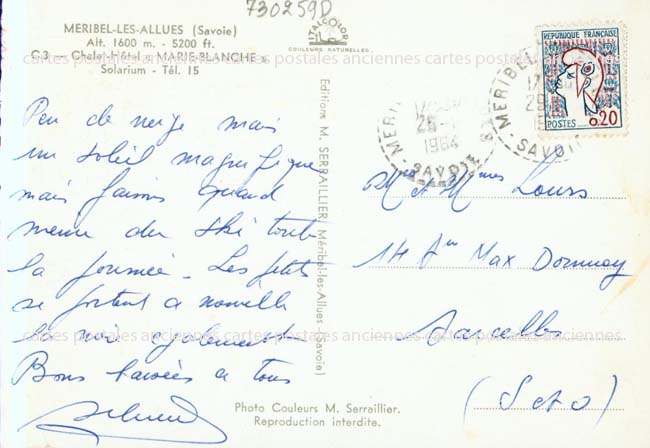 730259D
MERIBEL-LES-ALLUES (Savoie)
Alt. 1600 m. - 5200 ft.
C.3 - Chalet-Hôtel « MARIE-BLANCHE »
Solarium - Tél. 15
ITALCOLOR
COULEURS NATURELLES
cartes postales anciennes cartes postales anciennes cartes postales anciennes
Peu de neige mais
un soleil magnifique
mais faisons quand
meme du ski toute
la journée. Les petits
se portent a merveille
également
Bons baisers a tous
Editions M. SERRAILLIER, Méribel-les-Allues (Savoie)
Photo Couleurs M. Serraillier.
Reproduction interdite.
REPUBLIQUE FRANÇAISE
POSTES 0,20
MERIBEL
1964
SAVOIE
MERIBEL
SAVOIE
Mr et Mmes Lours
14 Av Max Dormoy
Sarcelles
(S et O)
cartes postales anciennes cartes postales anciennes cartes postales anciennes